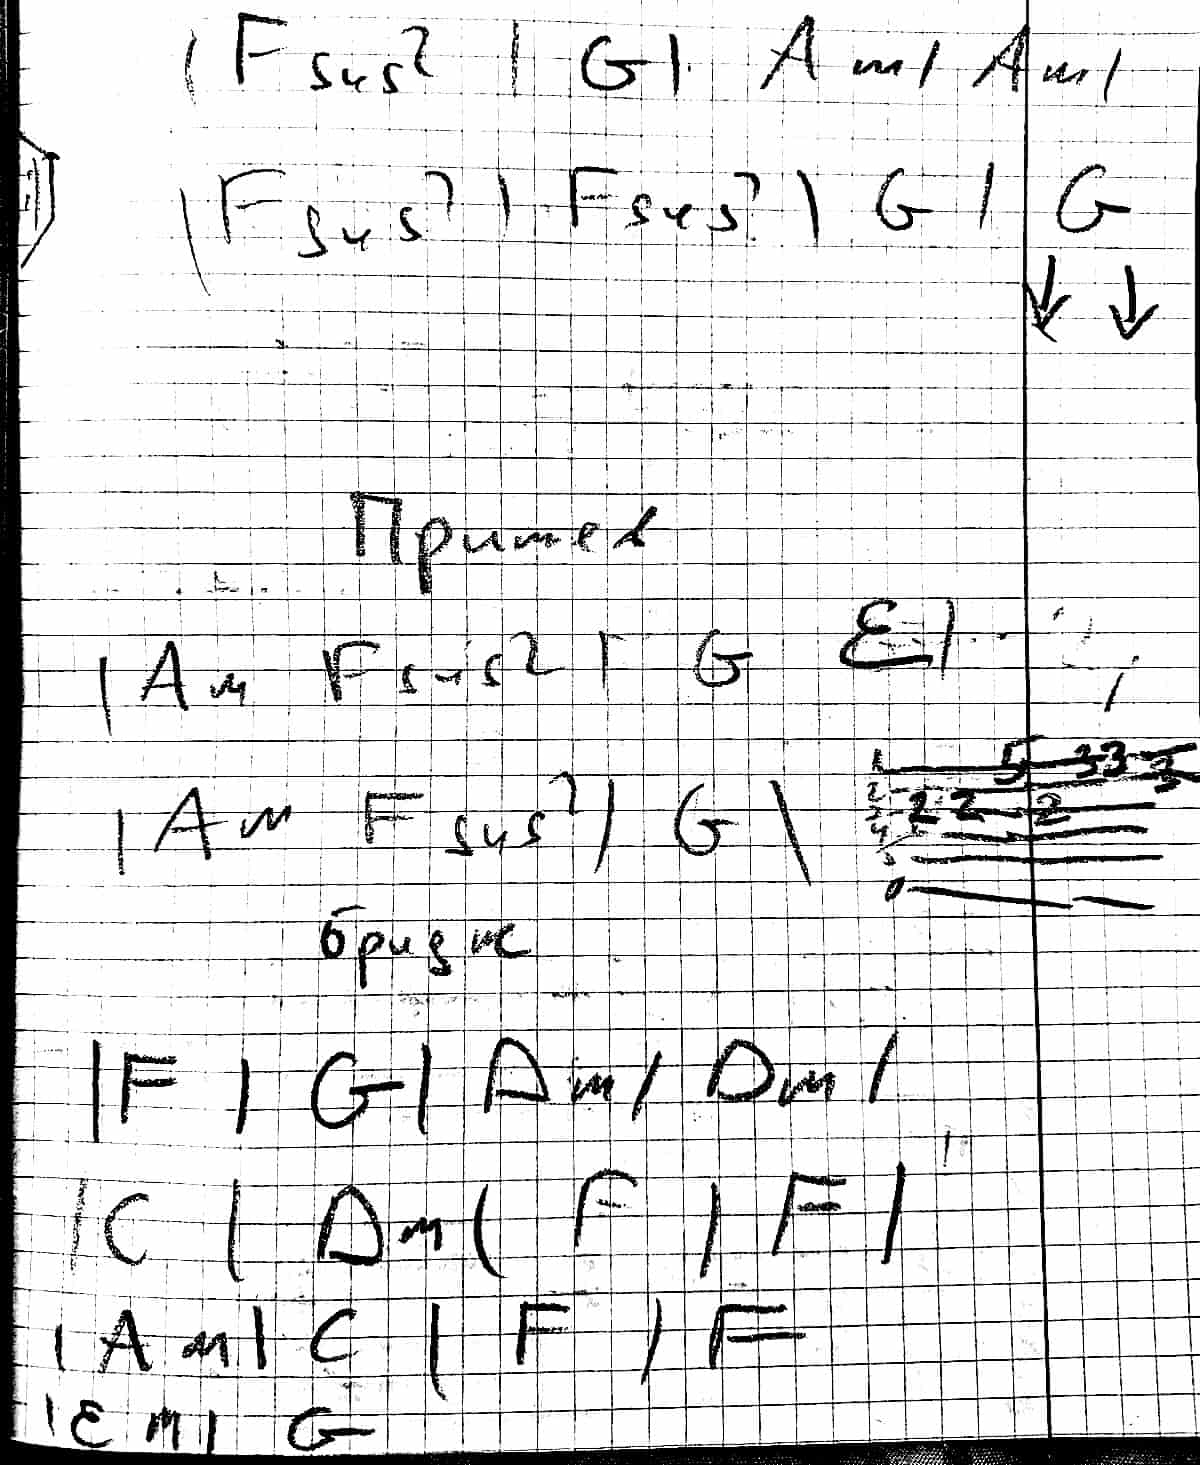 | Fsus2 | G | Am | Am |
| Fsus2 | Fsus2 | G | G
↓ ↓
Припев
| Am Fsus2 | G E |
| Am Fsus2 | G \
1 5 33 3
2
3 2 2 2
4
5
бридж
| F | G | Am | Dm |
| C | Dm ( F | F |
| Am | C | F | F
| Em | G